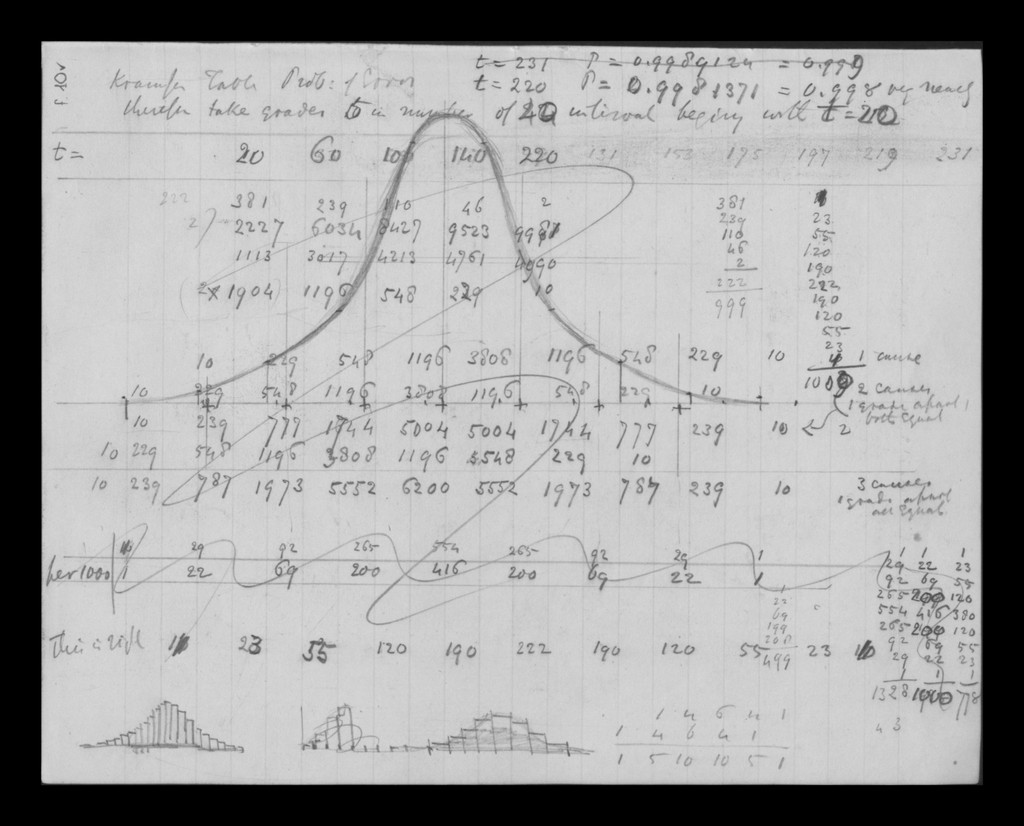 t = 231 P = 0.9989124 = 0.999
Table Prob: of Error t = 220 P = 0.9981371 = 0.998 very nearly
therefore take grades in number of 20 interval beginning with t = 20
t = 20 60 100 140 220 131 153 175 197 219 231
222 381 239 110 46 2 381
2227 6034 8427 9523 239 23
1113 3017 4213 4761 110 55
46 120
2 190
1904 1196 548 229 10 222 222
999 190
120
55
23
10 229 548 1196 3808 1196 548 229 10 1 cause
10 229 548 1196 1196 548 229 10 2 causes
1 grade apart
both equal
10 239 777 1744 5004 5004 1744 777 239 10 2
10 229 548 1196 3808 1196 548 229 10
10 239 787 1973 5552 6200 5552 1973 787 239 10 3 causes
1 grade apart
all equal
29 92 265 554 265 92 29 1
per 1000 1 22 69 200 416 200 69 22 1
1 1 1
29 22 23
92 69 55
265 200 120
554 416 380
265 200 120
92 69 55
29 22 23
1 1 1
1328 1000 778
22
69
199
208
499
This is right 23 55 120 190 222 190 120 55 23
1 4 6 4 1
1 4 6 4 1
1 5 10 10 5 1